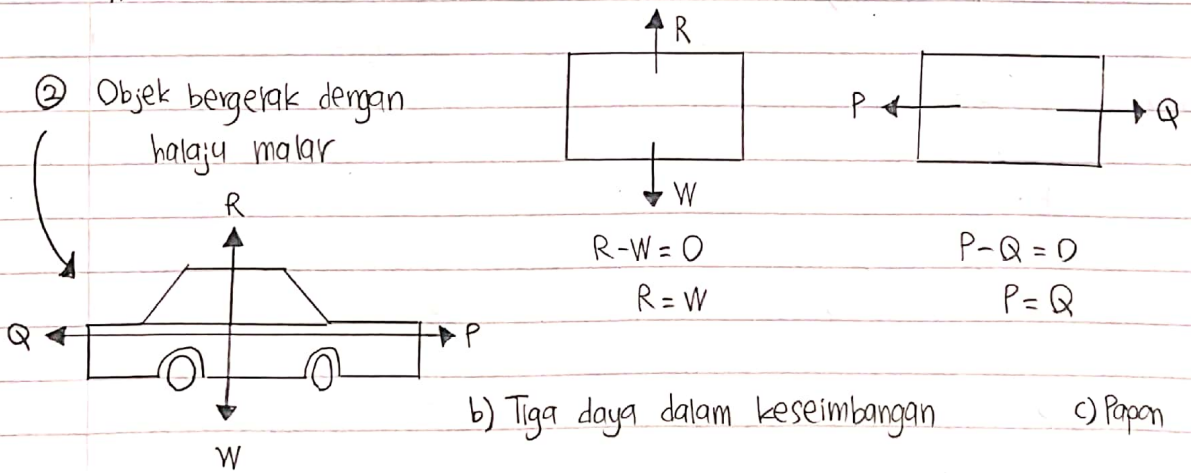 ② Objek bergerak dengan
halaju malar
R
Q
P
W
R
W
R-W=0
R=W
P
Q
P-Q=0
P=Q
b) Tiga daya dalam keseimbangan
c) Papan